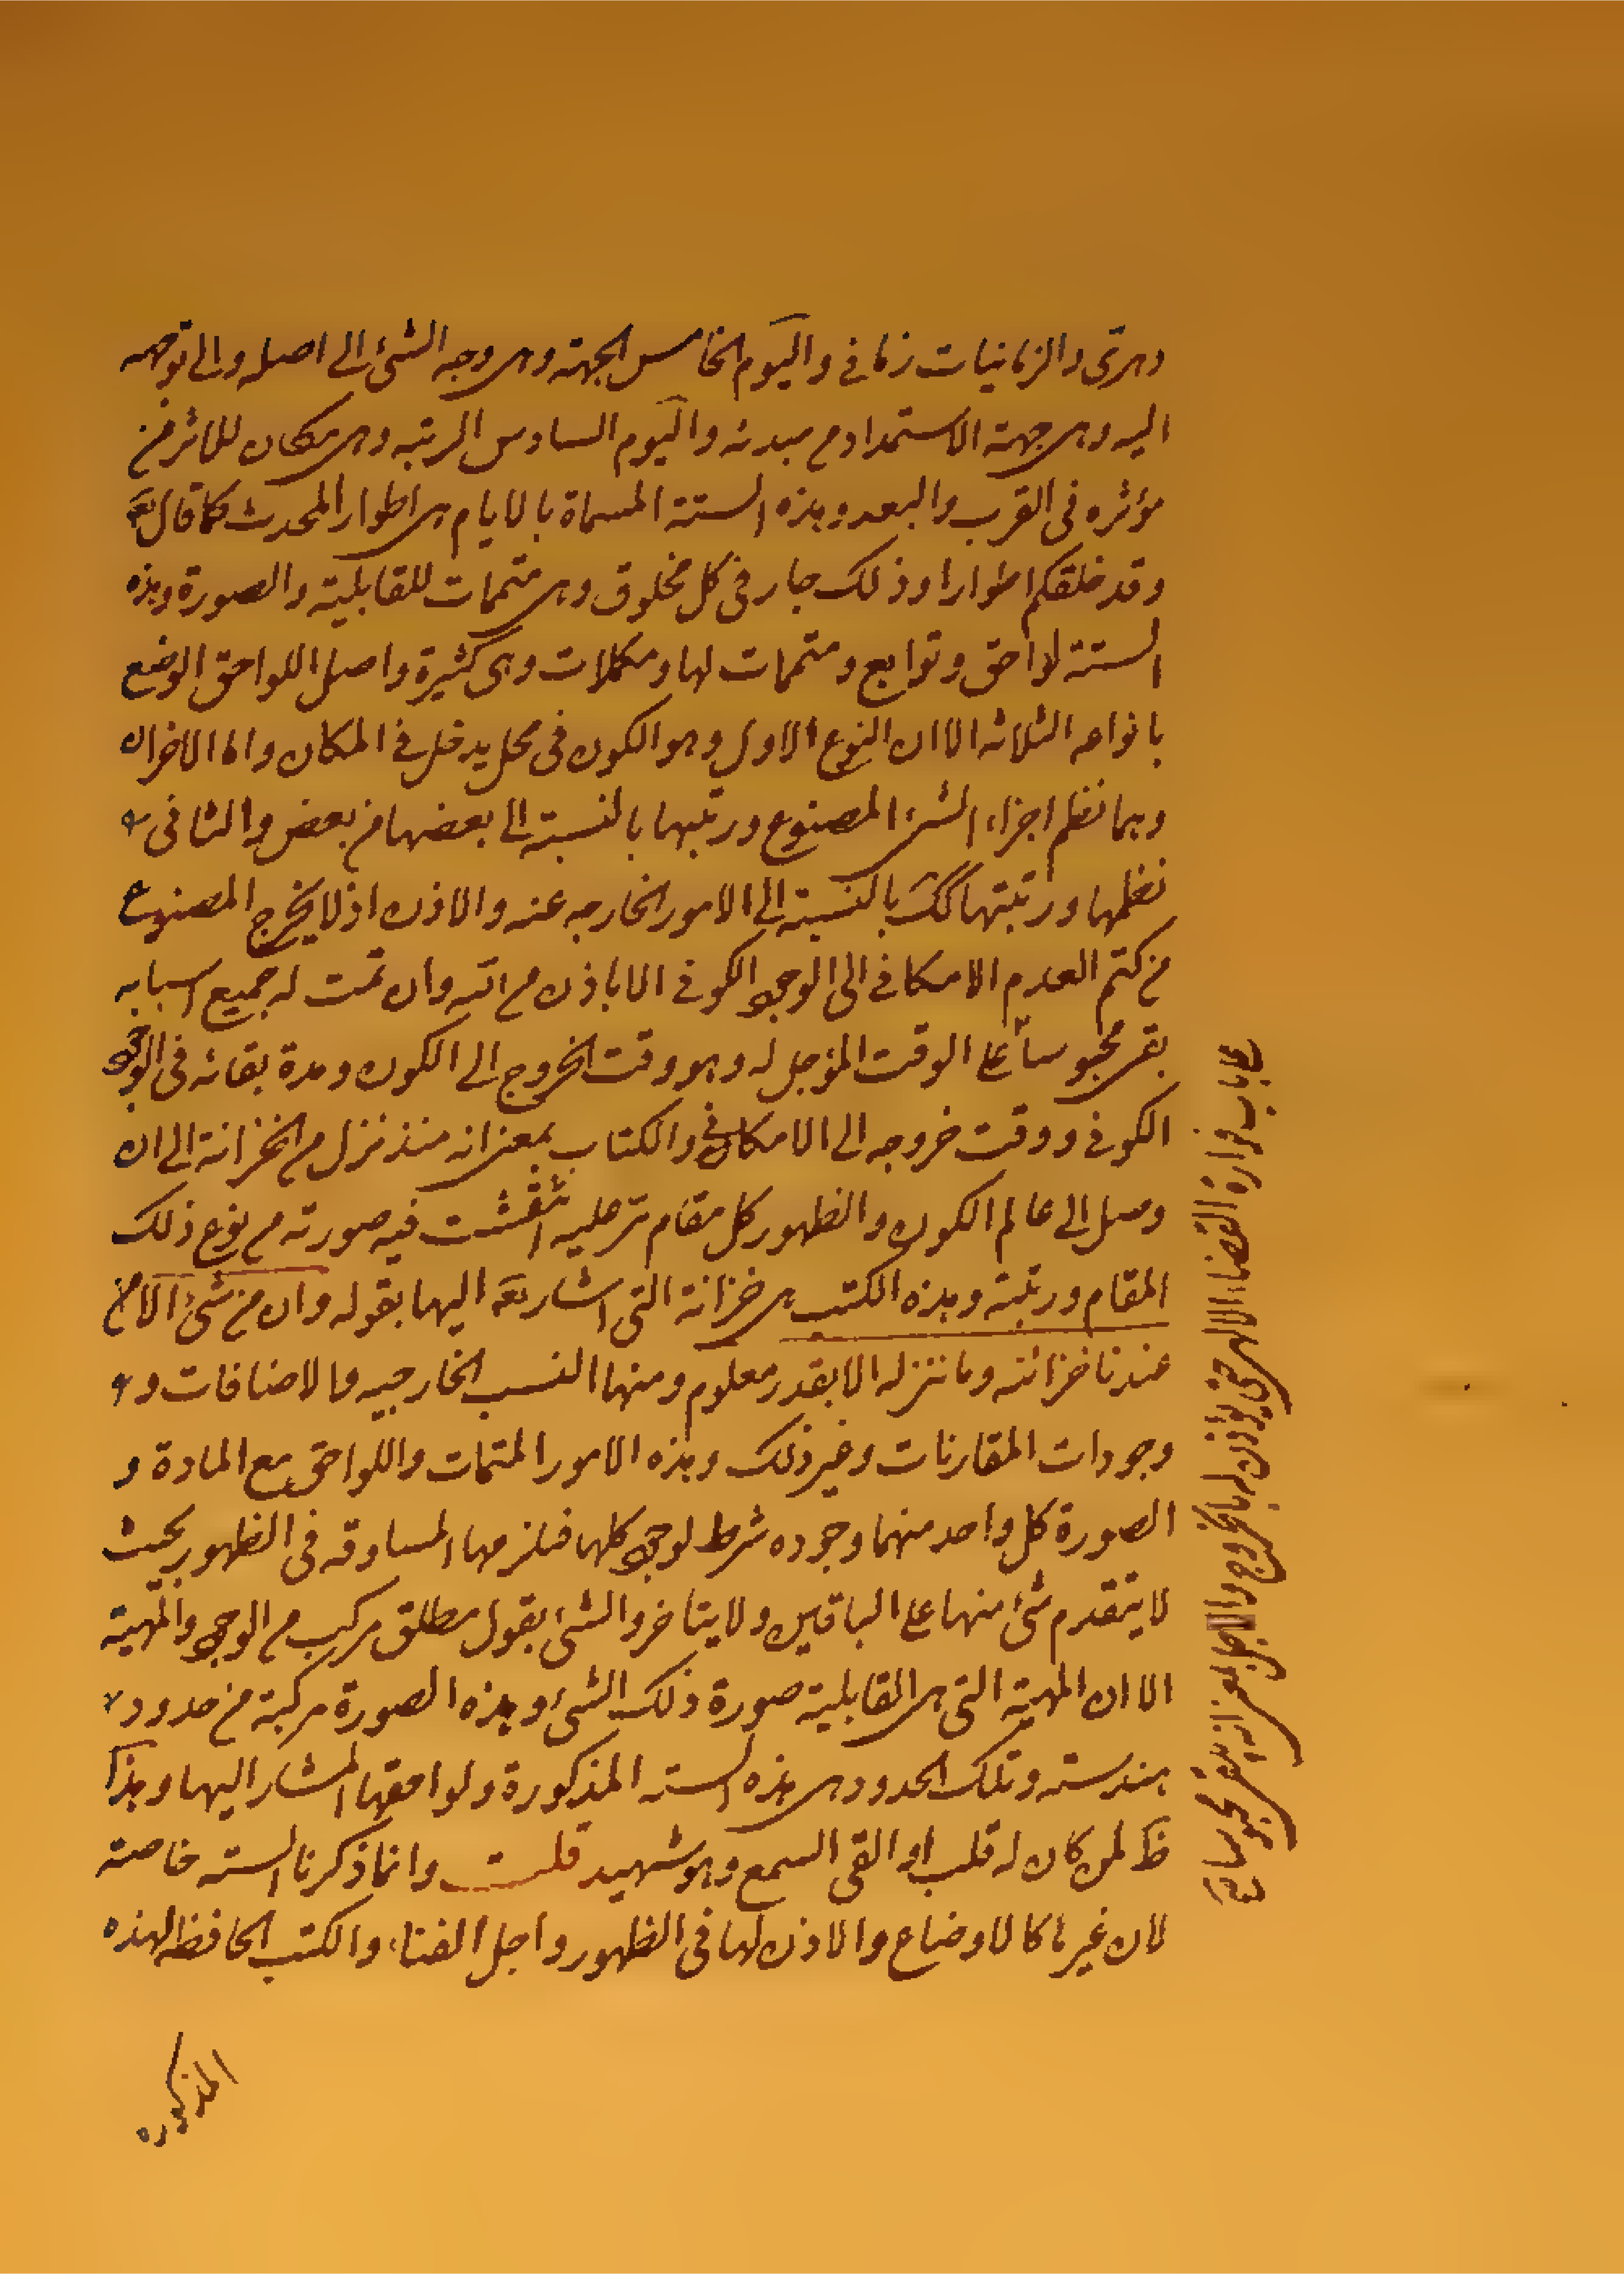 دهري والزمانيات زماني واليوم الخامس الجهة وهي وجه الشئ الى اصله والى توجهه
اليه وهي جهة الاستمداد من مبدئه واليوم السادس الرتبه وهي مكان للاثر من
مؤثره في القرب والبعد وهذه الستة المسماة بالايام هي اطوار المحدث كما قال تع
وقد خلقكم اطوارا وذلك جار في كل مخلوق وهي متممات للقابلية والصورة وهذه
الستة لواحق وتوابع ومتممات لها ومكملات وهي كثيرة واصل اللواحق الوضع
بانواعه الثلاثه الا ان النوع الاول وهو الكون في محل يدخل في المكان واما الاخران
وهما نظم اجزاء الشئ المصنوع ورتبها بالنسبة الى بعضها من بعض والثاني
نظمها ورتبتها كك بالنسبة الى الامور الخارجه عنه والاذن اذ لا يخرج المصنوع
من كتم العدم الامكاني الى الوجود الكوني الا باذن من الله وان تمت له جميع اسبابه
بقى محبوسا على الوقت المؤجل له وهو وقت الخروج الى الكون ومدة بقائه في الوجود
الكوني ووقت خروجه الى الامكان والكتاب بمعنى انه منذ نزل من الخزانة الى ان
وصل الى عالم الكون والظهور كل مقام مر عليه انتقشت فيه صورته من نوع ذلك
المقام ورتبته وهذه الكتب هي خزانة التي اشار تع اليها بقوله وان من شئ الا
عندنا خزائنه وما ننزله الا بقدر معلوم ومنها النسب الخارجيه والاضافات و
وجودات المقارنات وغير ذلك وهذه الامور المتممات واللواحق مع المادة و
الصورة كل واحد منهما وجوده شرط لوجود كلها فيلزمها المساوقه في الظهور بحيث
لا يتقدم شئ منها على الباقين ولا يتاخر والشئ بقول مطلق مركب من الوجود والمهية
الا ان المهية التي هي القابلية صورة ذلك الشئ وهذه الصورة مركبة من حدود
هندسته وتلك الحدود هي هذه الستة المذكورة ولواحقها المشار اليها وهذا
ظ لمن كان له قلب او القى السمع وهو شهيد قلت وانما ذكرنا الستة خاصة
لان غيرها كالاوضاع والاذن لها في الظهور واجل الفناء والكتب الحافظه لهذه
المذكوره
على باب فوارة القضاء الالهي حتى يؤذن له بالخروج والاجل بمعنى انه يبقى محبوسا